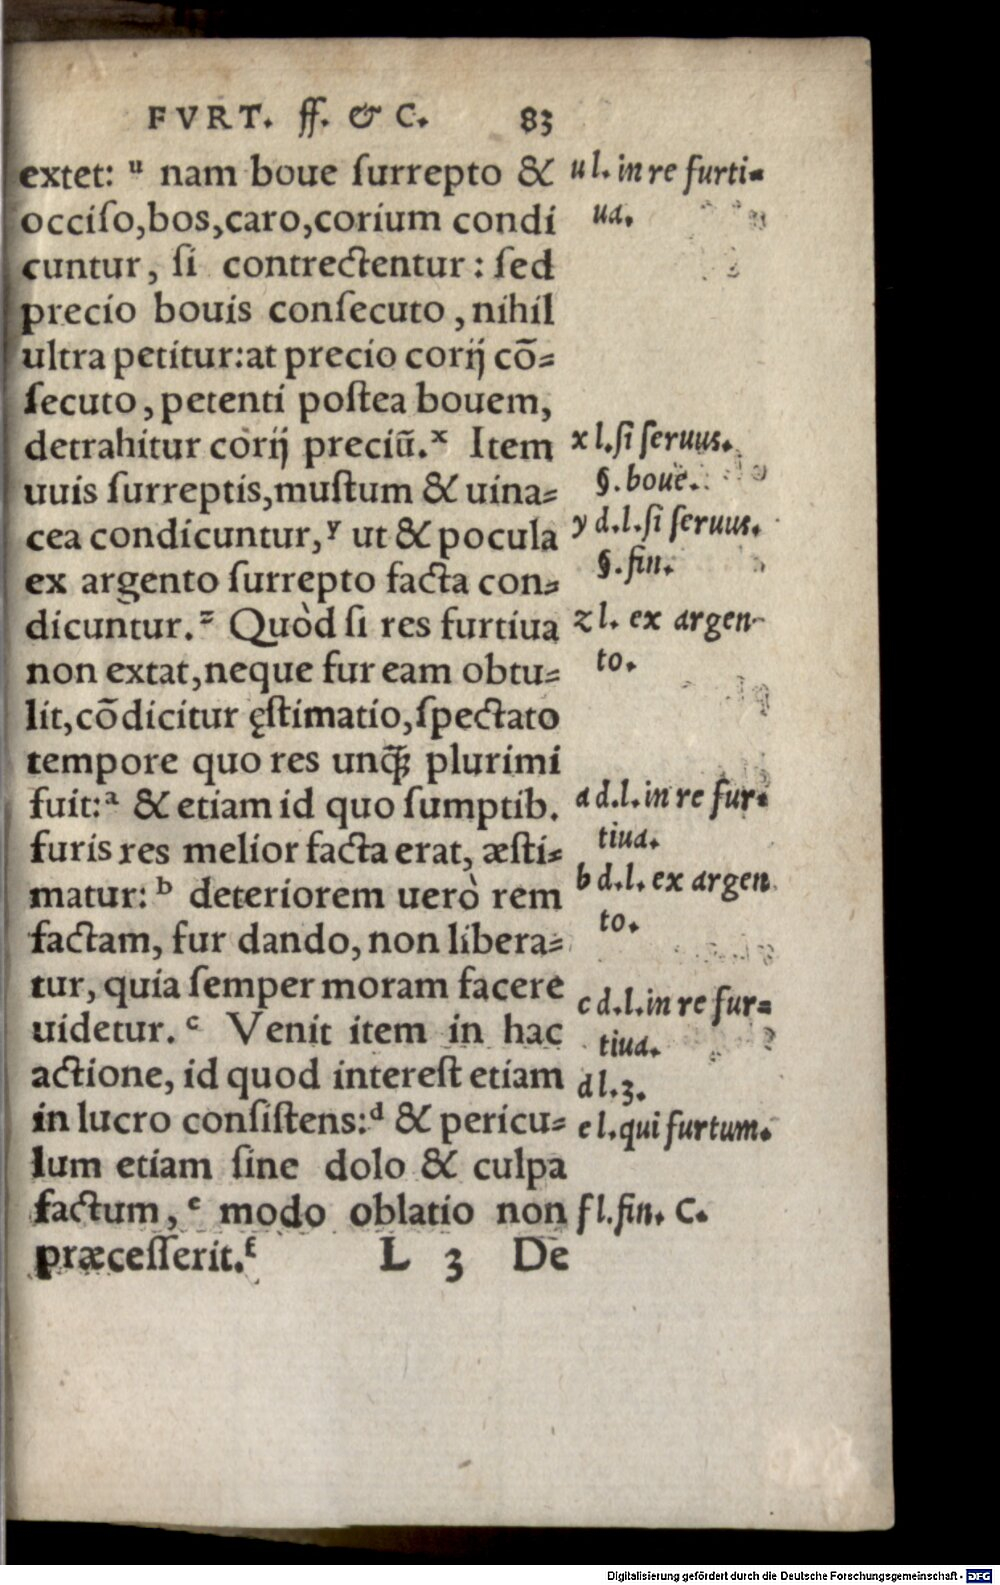 FVRT. ff. & C. 83
extet: ᵘ nam boue ſurrepto &
occiſo,bos,caro,corium condi
cuntur, ſi contrectentur: ſed
precio bouis conſecuto, nihil
ultra petitur:at precio corij cō=
ſecuto, petenti poſtea bouem,
detrahitur corij preciũ.ˣ Item
uuis ſurreptis,muſtum & uina=
cea condicuntur,ʸ ut & pocula
ex argento ſurrepto facta con=
dicuntur.ᶻ Quòd ſi res furtiua
non extat,neque fur eam obtu=
lit,cōdicitur ęſtimatio,ſpectato
tempore quo res unq̃ꝫ plurimi
fuit:ᵃ & etiam id quo ſumptib.
furis res melior facta erat, æſti=
matur:ᵇ deteriorem uerò rem
factam, fur dando, non libera=
tur, quia ſemper moram facere
uidetur. ᶜ Venit item in hac
actione, id quod intereſt etiam
in lucro conſiſtens:ᵈ & pericu=
lum etiam ſine dolo & culpa
factum, ᵉ modo oblatio non
præceſſerit.ᶠ L 3 De
u l. in re furti=
ua.
x l.ſi ſeruus.
§. boue.
y d.l.ſi ſeruus.
§. fin.
z l. ex argen-
to.
a d.l.in re fur=
tiua.
b d.l. ex argen
to.
c d.l.in re fur=
tiua.
d l.3.
e l.qui furtum.
f l.fin. C.
Digitalisierung gefördert durch die Deutsche Forschungsgemeinschaft - DFG